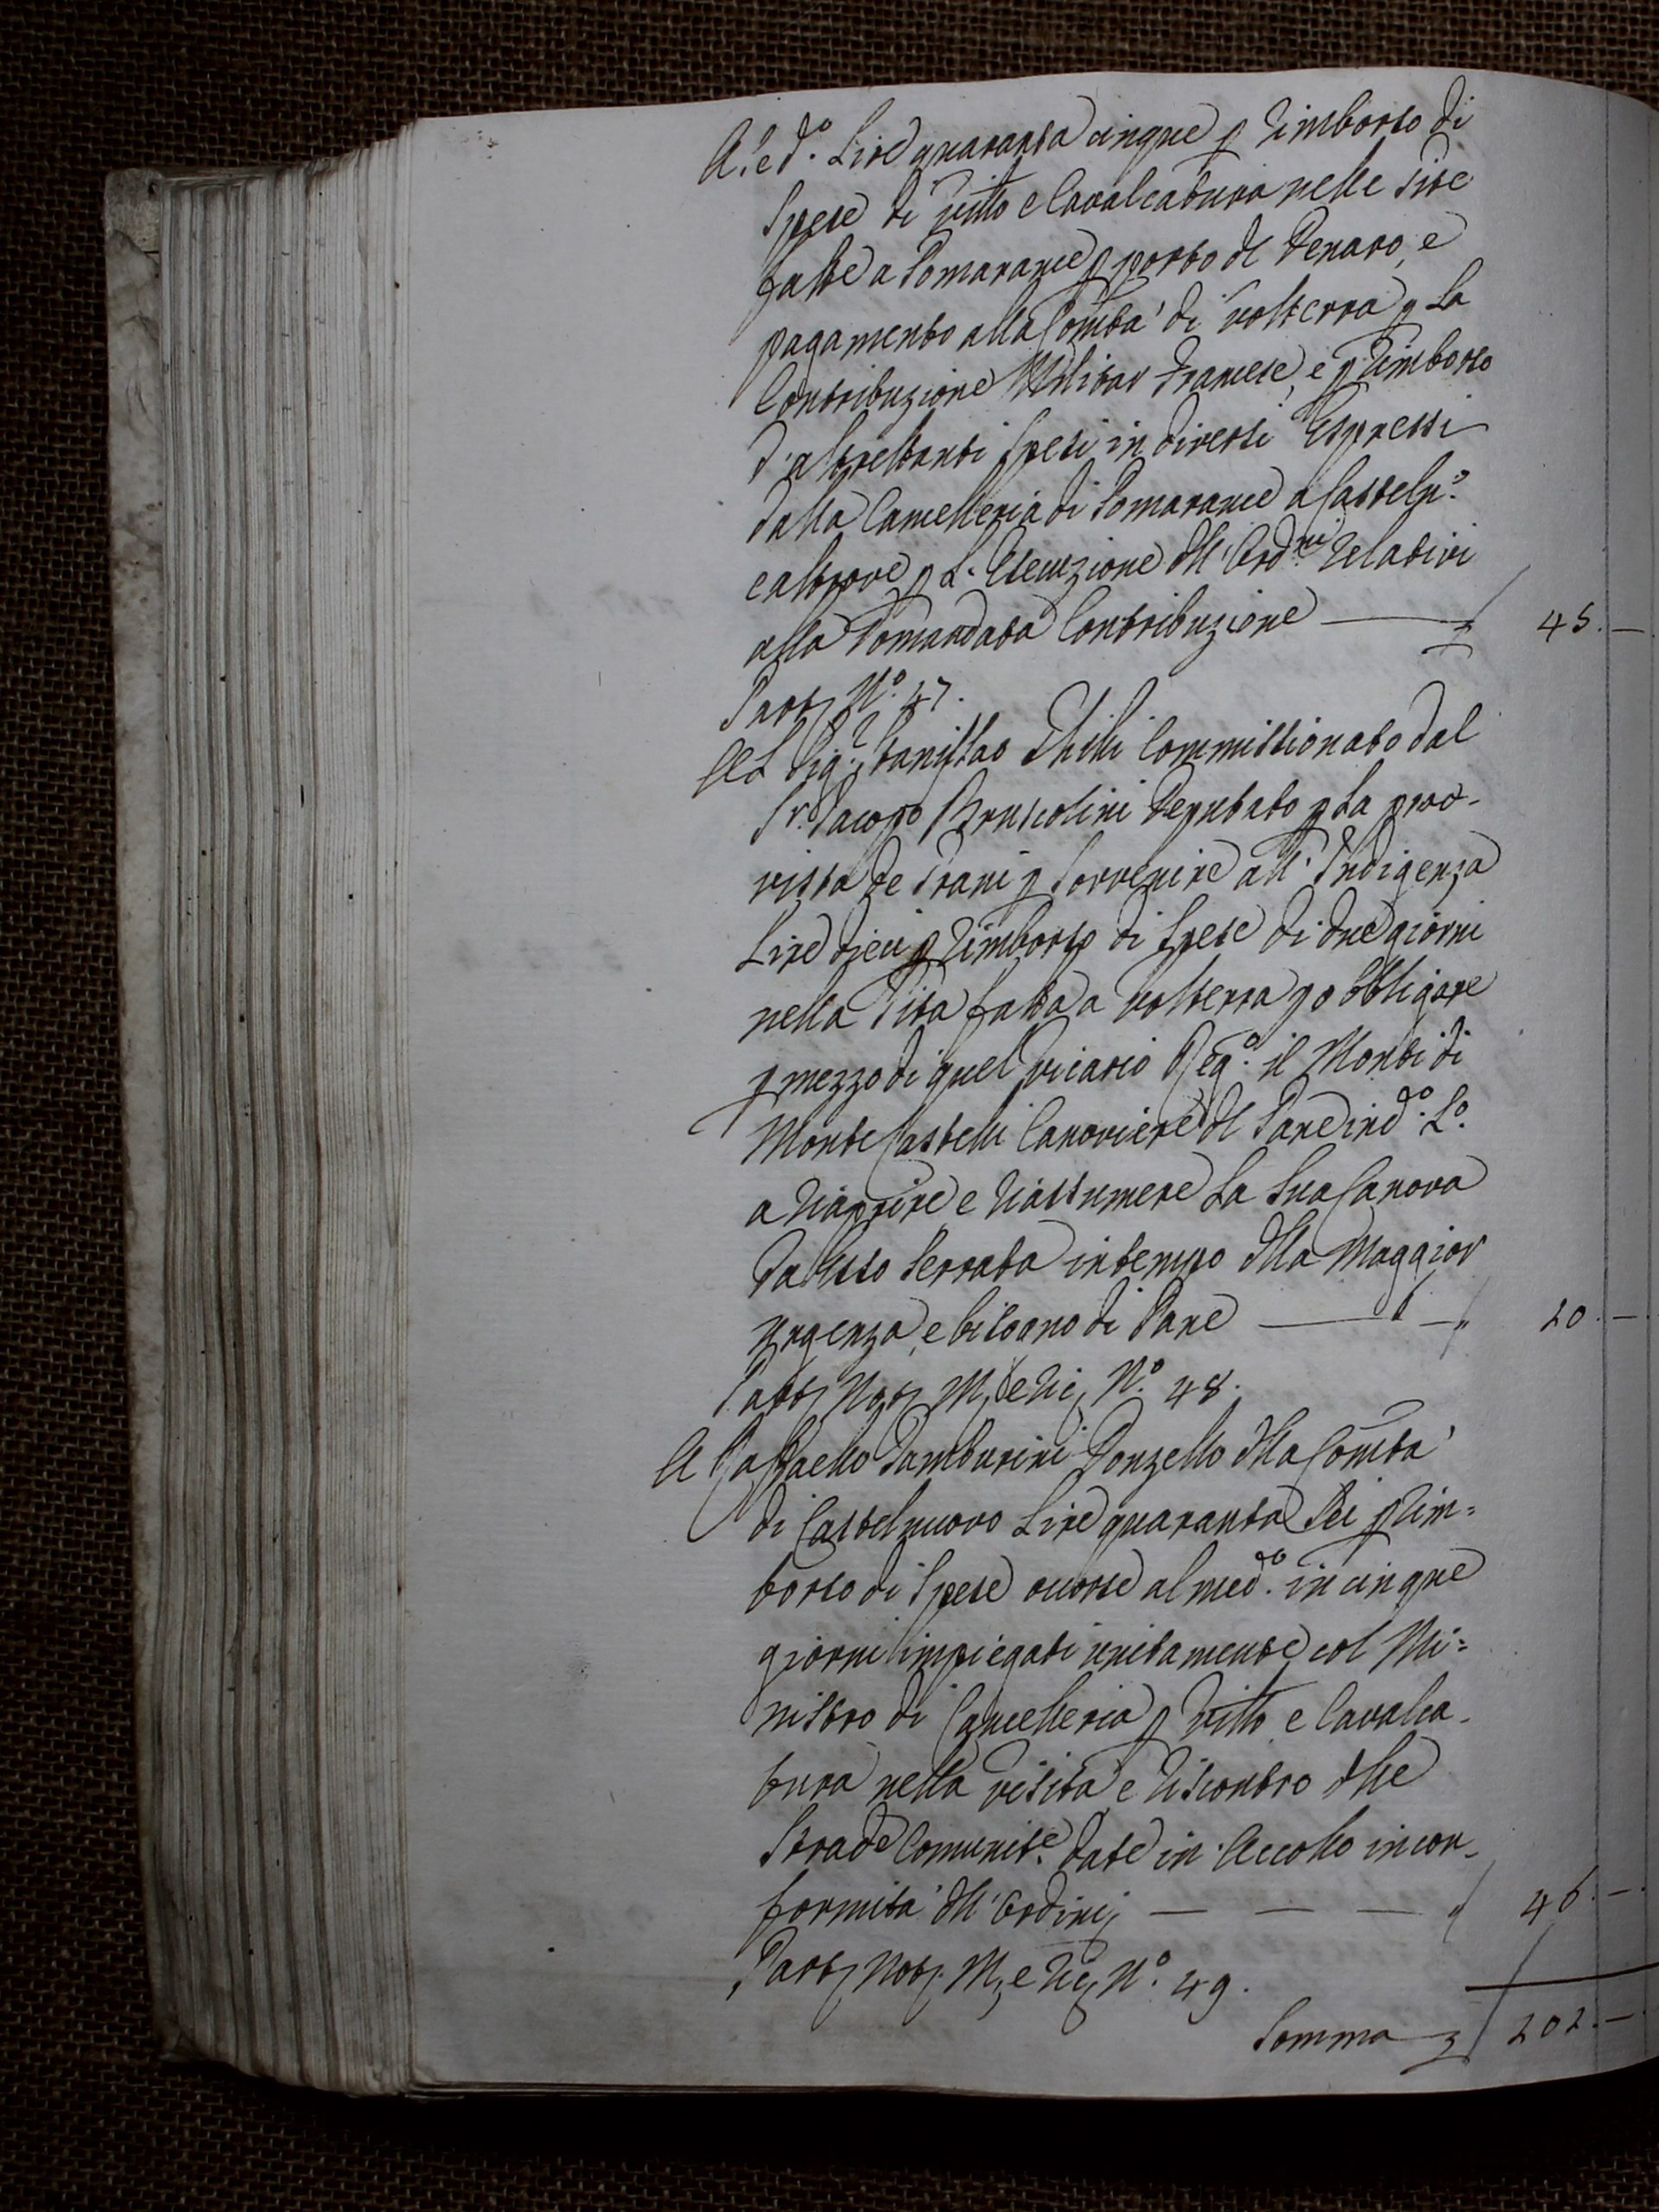 A. e d.º Lire quaranta cinque p Rimborso di
Spese di Vitto e Cavalcatura nelle Gite
fatte a Pomarance p porto del Denaro, e
pagamento alla Comtà di Volterra p La
Contribuzione Militar Francese, e p Rimborso
d'altrettanti spesi in diversi Espressi
dalla Cancelleria di Pomarance a Casteln.º
e altrove p L'Esecuzione dell'Ord.ni Relativi
alla Domandata Contribuzione — 45. —
Part. N.º 47.
Al Sig.r Stanislao Chilli Commissionato dal
S.r Jacopo Bruscolini Deputato p La prov-
vista de Grani p Sovvenire all'Indigenza
Lire dieci p Rimborso di Spese di due giorni
nella Gita fatta a Volterra p obbligare
p mezzo di quel Vicario Reg.º il Monti di
Monte Castelli Canoviere del Pane in d.º L.º
a Riaprire e Riassumere La Sua Canova
da Esso Serrata in tempo della Maggior
Urgenza, e bisogno di Pane — 10. —
Part. Not. M, e Ric, N.º 48.
A Raffaello Tamburini Donzello della Comtà
di Castelnuovo Lire quaranta Sei p Rim=
borso di Spese occorse al med.º in cinque
giorni impiegati unitamente col Mi=
nistro di Cancelleria p Vitto e Cavalca-
tura nella visita e Riscontro delle
Strade Comunit.e date in Accollo in con-
formità dell'Ordini — — — 46. —
Part. Not. M, e Ric, N.º 49.
Somma 202. —